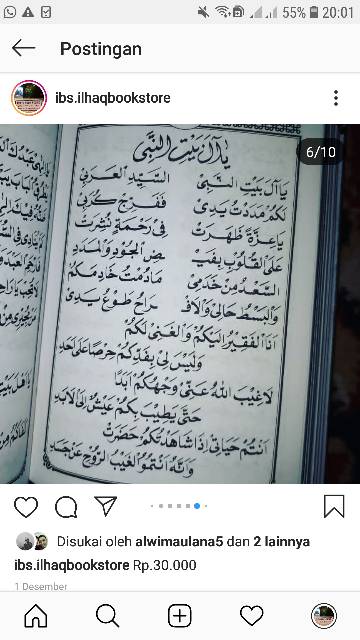 20:01
55%
Postingan
ibs.ilhaqbookstore
6/10
يَا آلَ بَيْتِ النَّبِي
يَا آلَ بَيْتِ النَّبِيْ السَّيِّدِ الْعَرَبِيْ
لَكُمْ مَدَدْتُ يَدِيْ فَفَرِّجْ كُرَبِيْ
يَا عِزَّةً ظَهَرَتْ فِيْ رَحْمَةٍ نُشِرَتْ
عَلَى الْقُلُوْبِ بِفَيْـ ـضِ الْجُوْدِ وَالْمَدَدِ
السَّعْدُ مِنْ خَدَمِيْ مَا دُمْتُ خَادِمَكُمْ
وَالْبَسْطُ حَالِيْ وَالْاَفْـ ـرَاحُ طَوْعُ يَدِيْ
اَنَا الْفَقِيْرُ اِلَيْكُمْ وَالْغَنِيُّ لَكُمْ
وَلَيْسَ لِيْ بَعْدَكُمْ حِرْصًا عَلَى اَحَدِ
لَاغَيَّبَ اللهُ عَنِّيْ وَجْهَكُمْ اَبَدًا
حَتَّى يَطِيْبَ بِكُمْ عَيْشٌ اِلَى الْاَبَدِ
اَنْتُمْ حَيَاتِيْ اِذَا شَاهَدْتُكُمْ حَضَرَتْ
عَنْ جَسَدِ
Disukai oleh alwimaulana5 dan 2 lainnya
ibs.ilhaqbookstore Rp.30.000
1 Desember